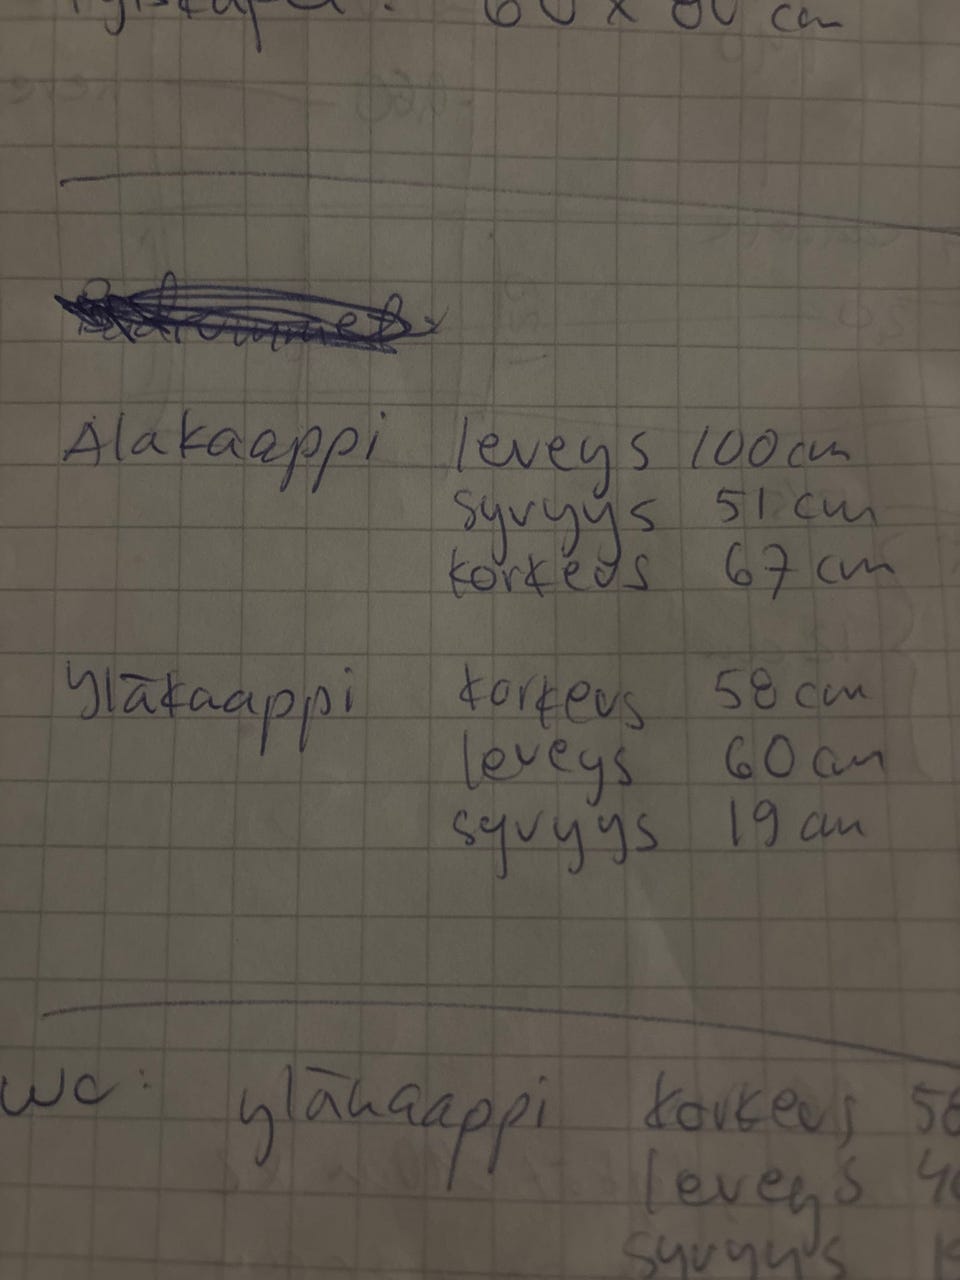 60 x 80 cm
Alakaappi leveys 100 cm
syvyys 51 cm
korkeus 67 cm
Yläkaappi korkeus 58 cm
leveys 60 cm
syvyys 19 cm
WC: yläkaappi korkeus
leveys
syvyys